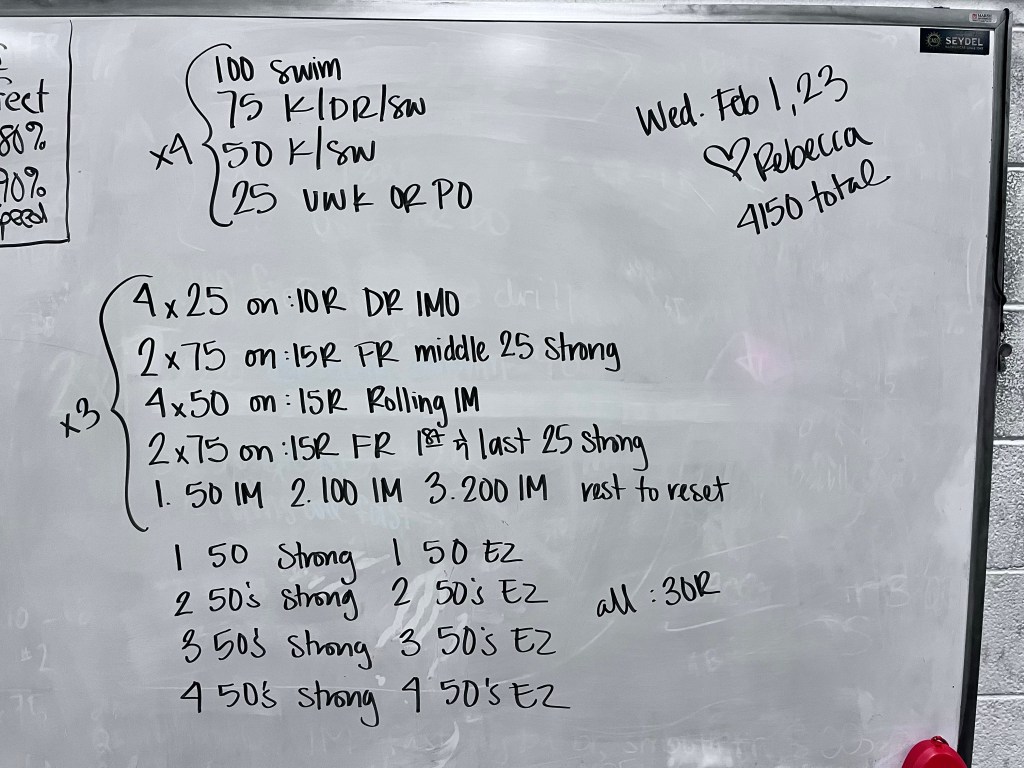 SEYDEL
ect
80%
90%
peed
x4
100 swim
75 K/DR/SW
50 K/SW
25 UWK OR PO
Wed. Feb 1, 23
♡ Rebecca
4150 total
x3
4x25 on :10R DR IMO
2x75 on :15R FR middle 25 strong
4x50 on :15R Rolling IM
2x75 on :15R FR 1st & last 25 strong
1. 50 IM 2. 100 IM 3. 200 IM rest to reset
1 50 strong 1 50 EZ
2 50's strong 2 50's EZ
3 50's strong 3 50's EZ
4 50's strong 4 50's EZ
all :30R